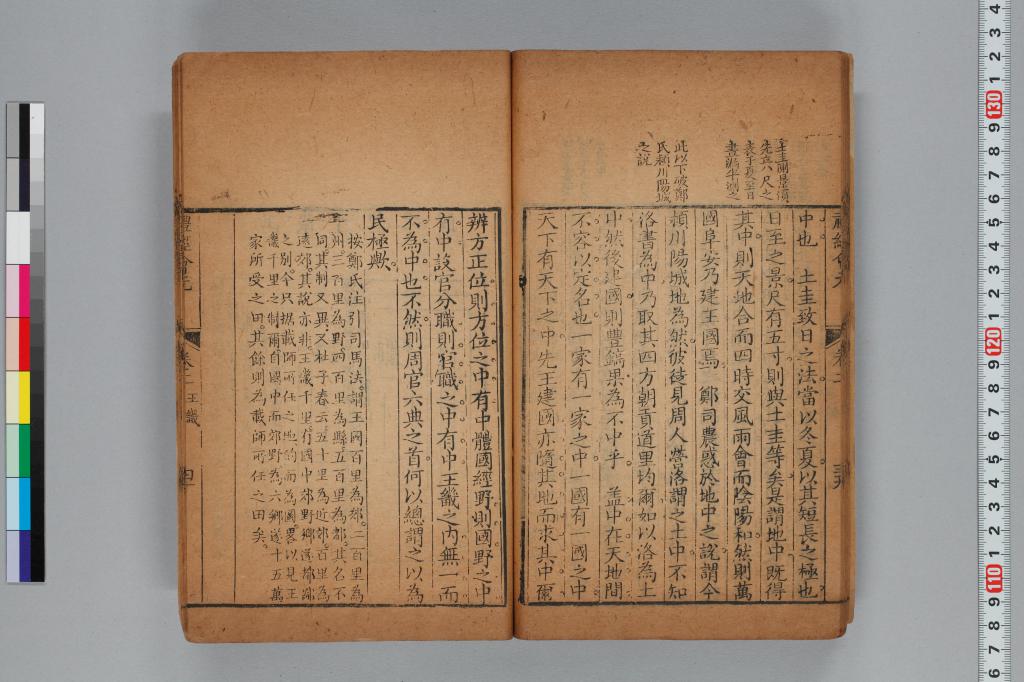 中也　土圭致日之法當以冬夏以其短長之極也
日至之景尺有五寸則與土圭等矣是謂地中既得
其中則天地合而四時交風雨會而陰陽和然則萬
國阜安乃建王國焉　鄭司農惑於地中之說謂今
潁川陽城地為然彼徒見周人營洛謂之土中不知
洛書為中乃取其四方朝貢道里均爾如以洛為土
中然後建國則豐鎬果為不中乎　蓋中在天地間
不容以定名也一家有一家之中一國有一國之中
天下有天下之中先王建國亦隨其地而求其中爾
此以下破鄭
民潁川陽城
之說
辨方正位則方位之中有中體國經野則國野之中
有中設官分職則官職之中有中王畿之內無一而
不為中也不然則周官六典之首何以總謂之以為
民極歟
按鄭氏註引司馬法謂王國百里為郊二百里為
州三百里為野四百里為縣五百里為都其名不
同其制又異又杜子春云五十里為近郊百里為
遠郊其說亦非王畿千里
之別今只據載師所任之地
畿千里之制爾自國中而郊野為六鄉遂十五萬
家所受之田其餘則為載師所任之田矣
卷二
王畿